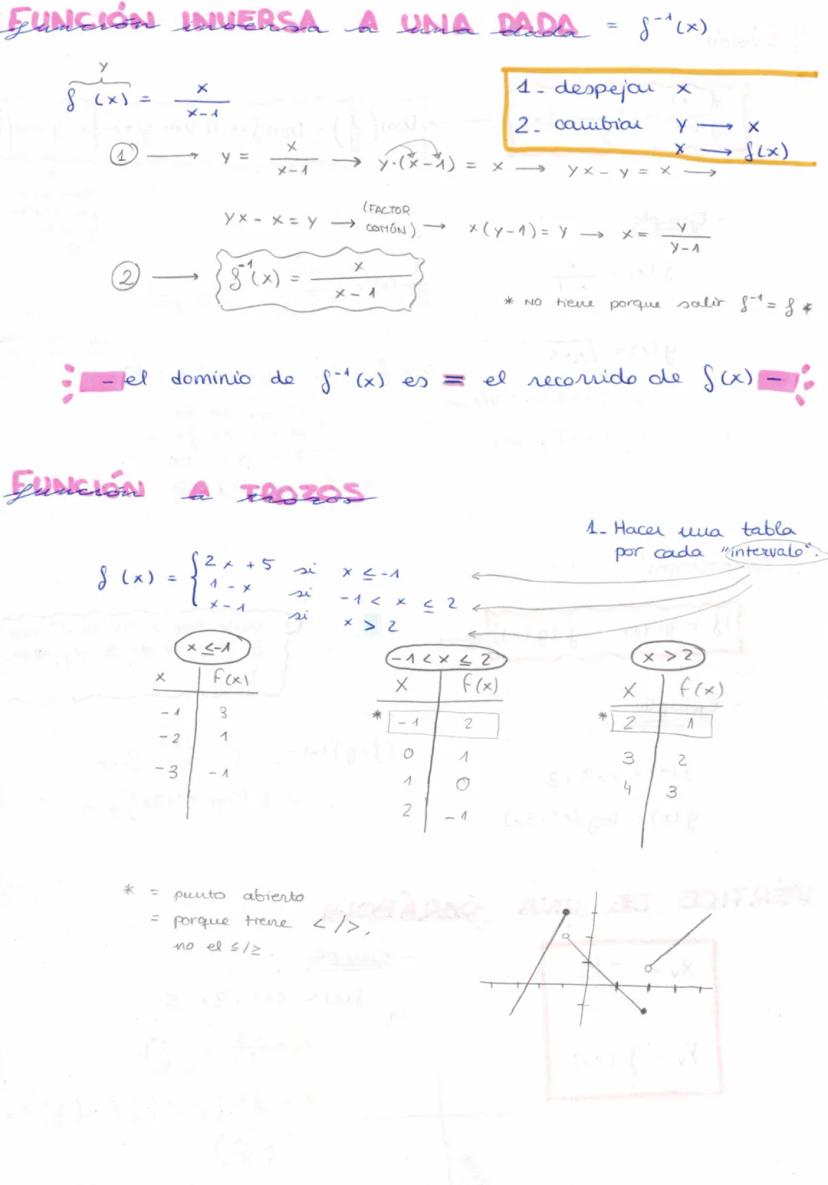 FUNCIÓN INVERSA A UNA DADA = f⁻¹(x)
y
f(x) = x/(x-1)
1- despejar x
2- cambiar y → x
x → f(x)
① → y = x/(x-1) → y·(x-1) = x → yx - y = x →
yx - x = y → (FACTOR COMÚN) → x(y-1) = y → x = y/(y-1)
② → f⁻¹(x) = x/(x-1)
* NO tiene porque salir f⁻¹ = f *
- el dominio de f⁻¹(x) es = el recorrido de f(x) -
FUNCIÓN A TROZOS
1- Hacer una tabla
por cada "intervalo".
f(x) = { 2x + 5 si x ≤ -1
1 - x si -1 < x ≤ 2
x - 1 si x > 2
x ≤ -1
x f(x)
-1 3
-2 1
-3 -1
-1 < x ≤ 2
x f(x)
* -1 2
0 1
1 0
2 -1
x > 2
x f(x)
* 2 1
3 2
4 3
* = punto abierto
= porque tiene </>,
no el ≤/≥.